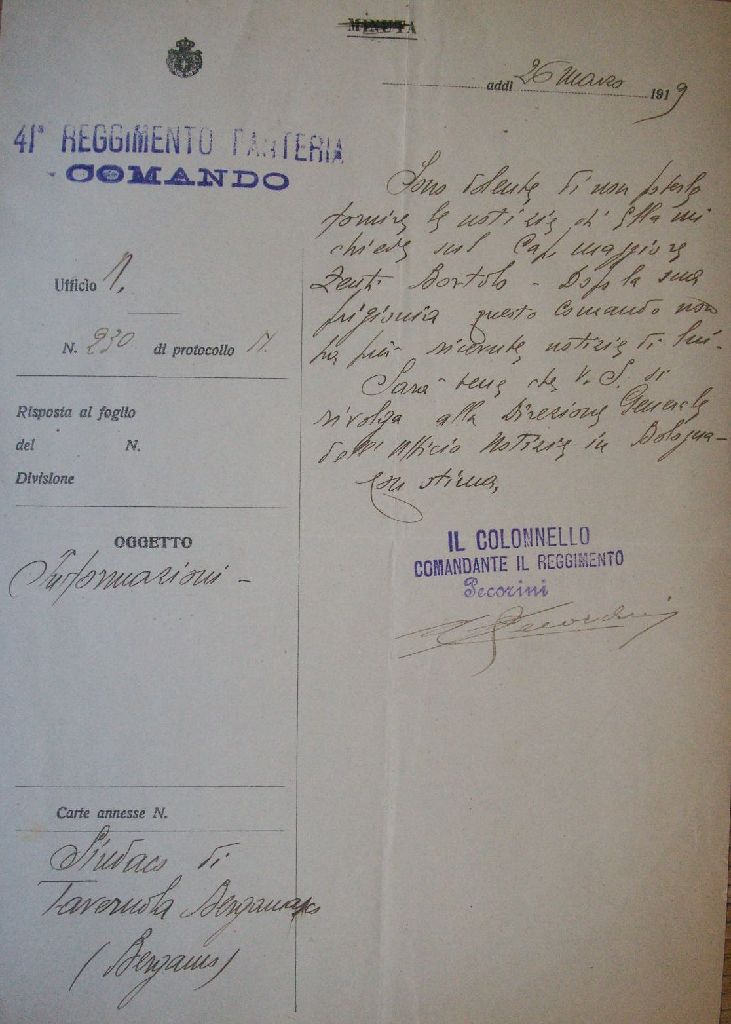 MINUTA
addì 26 Marzo 1919
41° REGGIMENTO FANTERIA
COMANDO
Ufficio 1,
N. 230 di protocollo M.
Risposta al foglio
del N.
Divisione
OGGETTO
Informazioni -
Carte annesse N.
Sindaco di
Tavernola Bergamasco
(Bergamo)
Sono dolente di non poterle
fornire le notizie ch'Ella mi
chiede sul Cap. maggiore
Zenti Bortolo - Dopo la sua
prigionia questo Comando non
ha più ricevute notizie di lui.
Sarà bene che V. S. si
rivolga alla Direzione Generale
dell'Ufficio Notizie in Bologna -
Con stima,
IL COLONNELLO
COMANDANTE IL REGGIMENTO
Pecorini
Pecorini